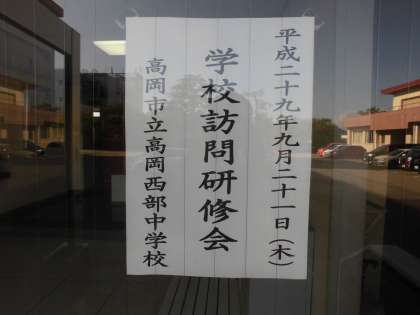 平成二十九年九月二十一日(木)
学校訪問研修会
高岡市立高岡西部中学校